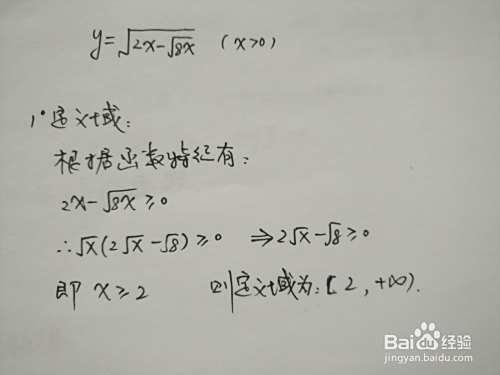 y=√(2x-√(8x)) (x>0)
1° 定义域:
根据函数特征有:
2x-√(8x)≥0
∴√x(2√x-√8)≥0 ⇒2√x-√8≥0
即 x≥2 则定义域为:[2,+∞).
Baidu经验
jingyan.baidu.com